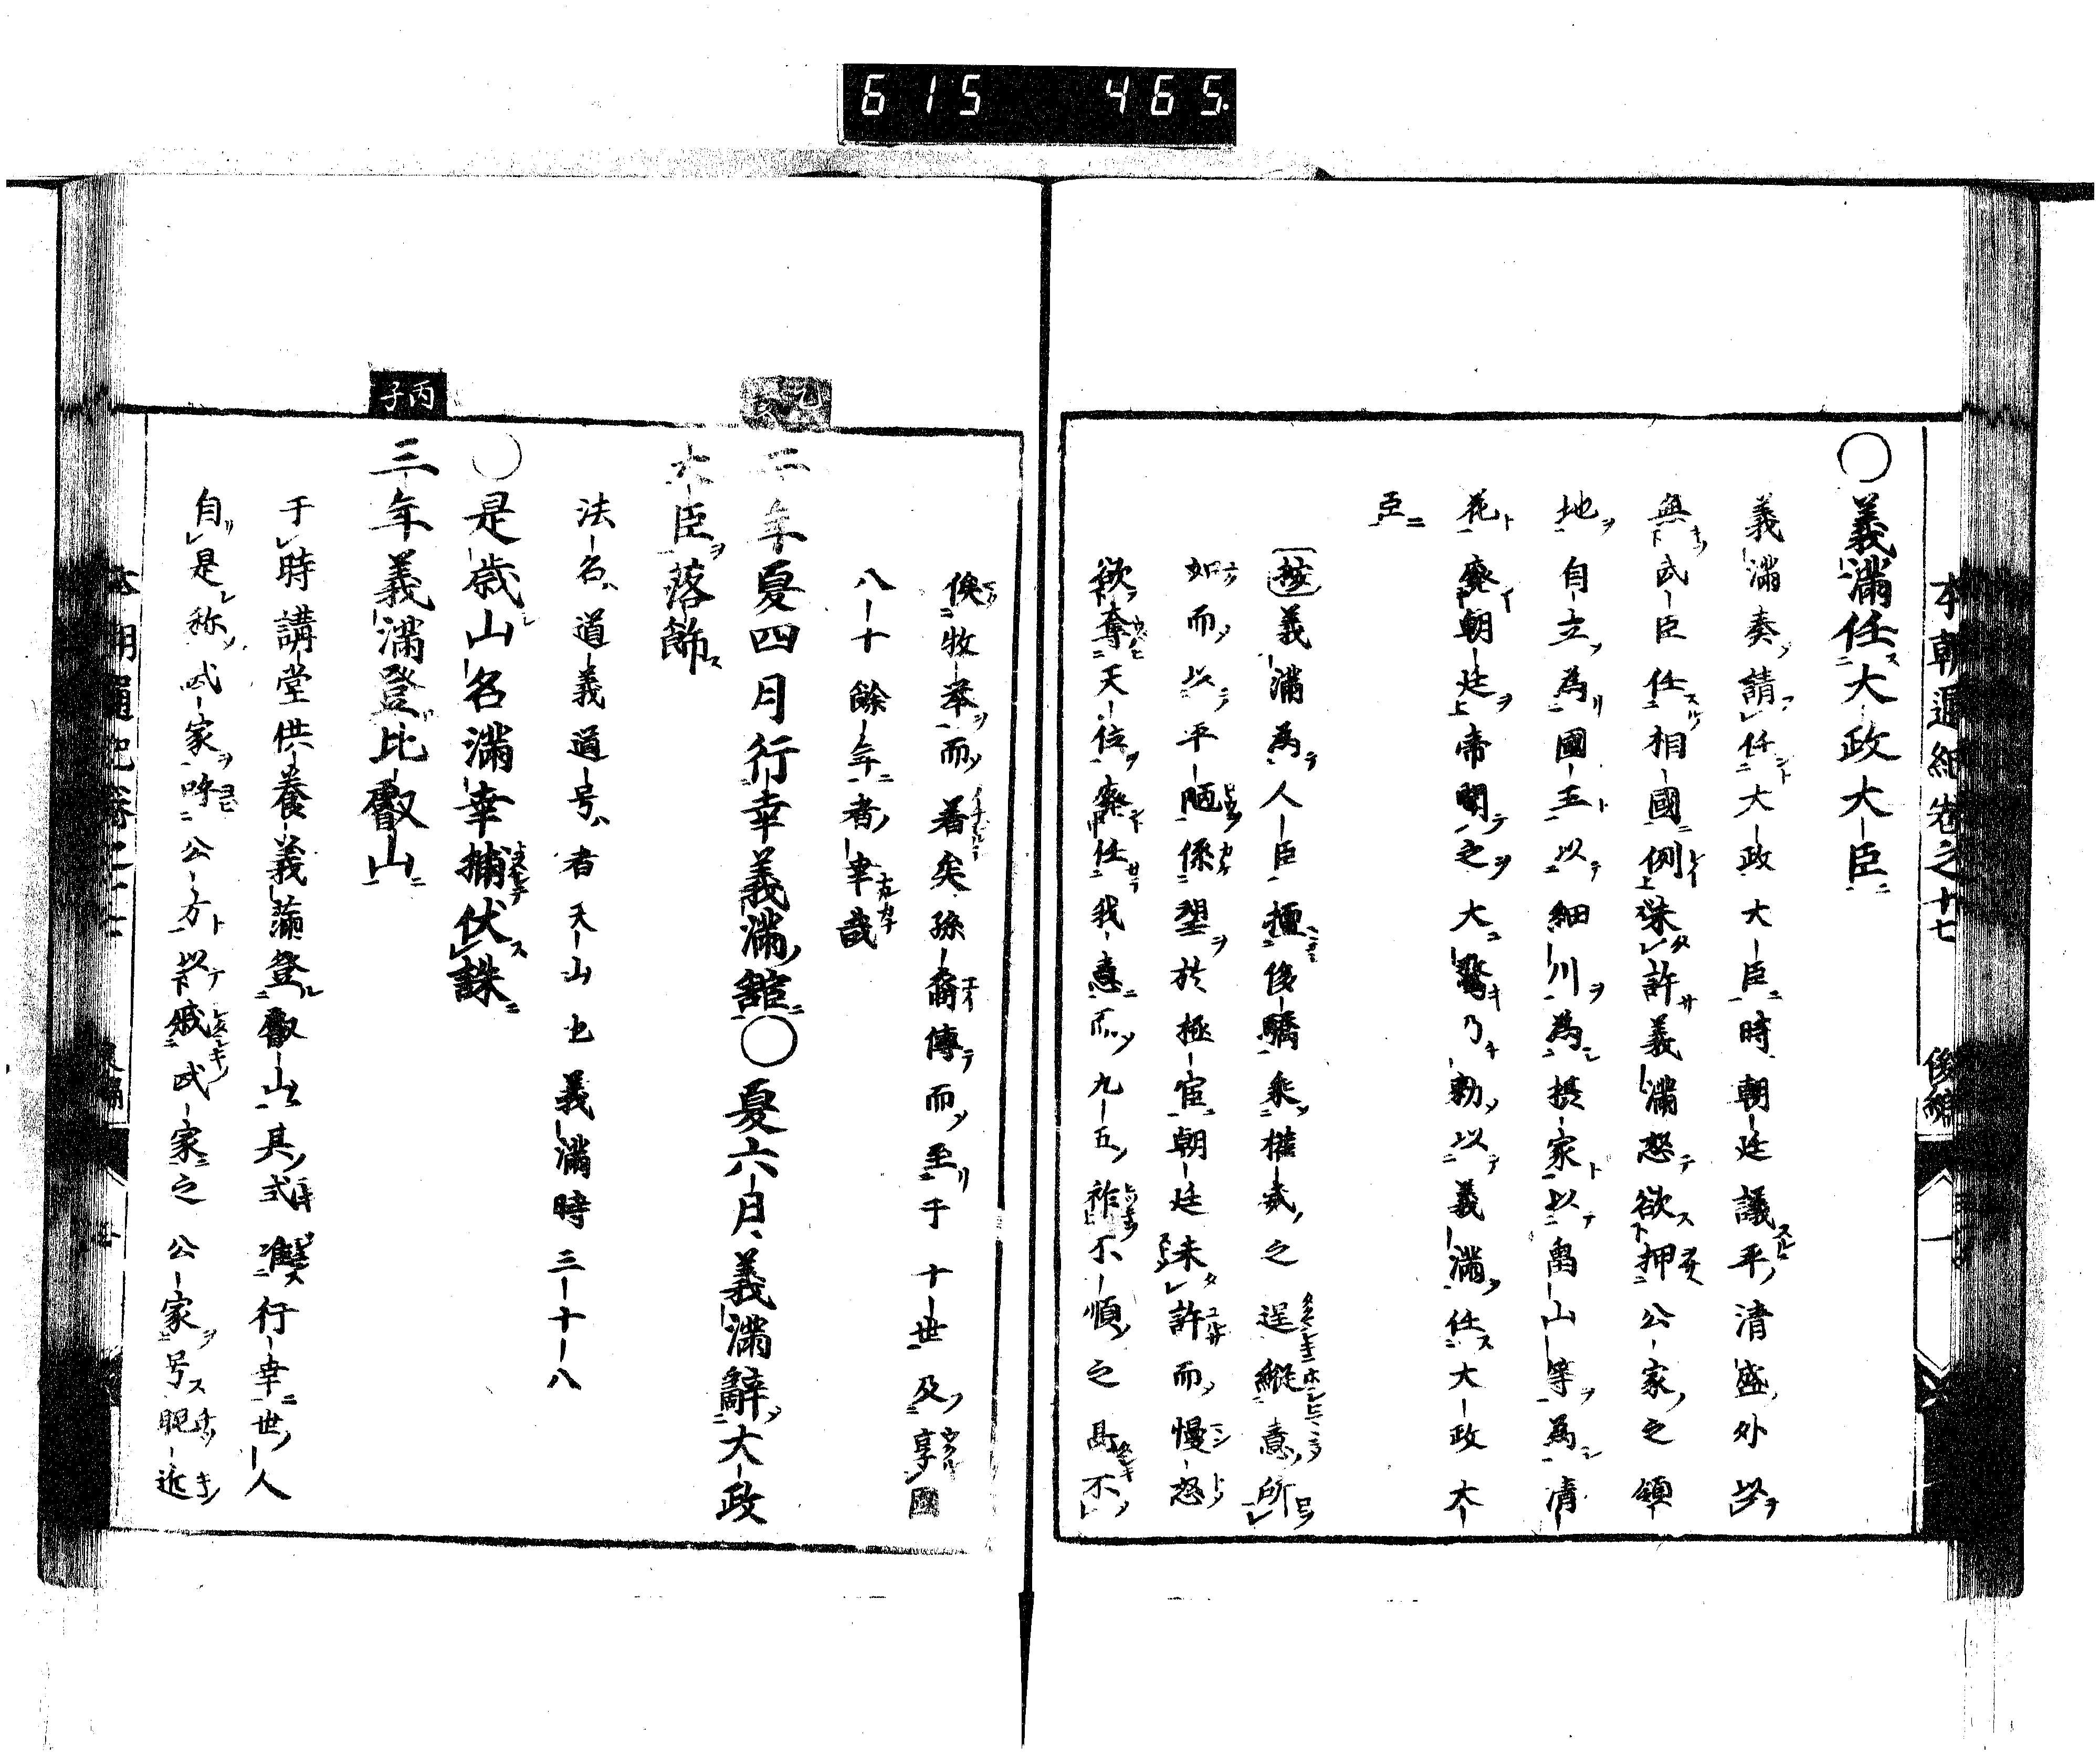 615 465
本朝通紀卷之十七 後編
○義滿任大政大臣
義滿奏請任大政大臣時朝廷議平清盛外以
無武臣任相國例未許義滿怒欲押公家之領
地自立為國王以細川為摂家以畠山等為清
花廢朝廷帝聞之大驚乃勅以義滿任大政大
臣
按義滿為人臣擅後驕乘權威之逞縱意所
如而以平陋係望於極官朝廷未許而慢怒
欲奪天位廢任我意而九五祚不順之鬲不
俟牧举而着矣孫裔傳而至于十世及享國
八十餘年者幸哉
乙亥
二年夏四月行幸義滿舘○夏六月義滿辭大政
大臣落飾
法名道義道号者天山也義滿時三十八
○是歲山名滿幸捕伏誅
丙子
三年義滿登比叡山
于時講堂供養義滿登叡山其式準行幸世人
自是称武家呼公方以戚武家之公家号昵近